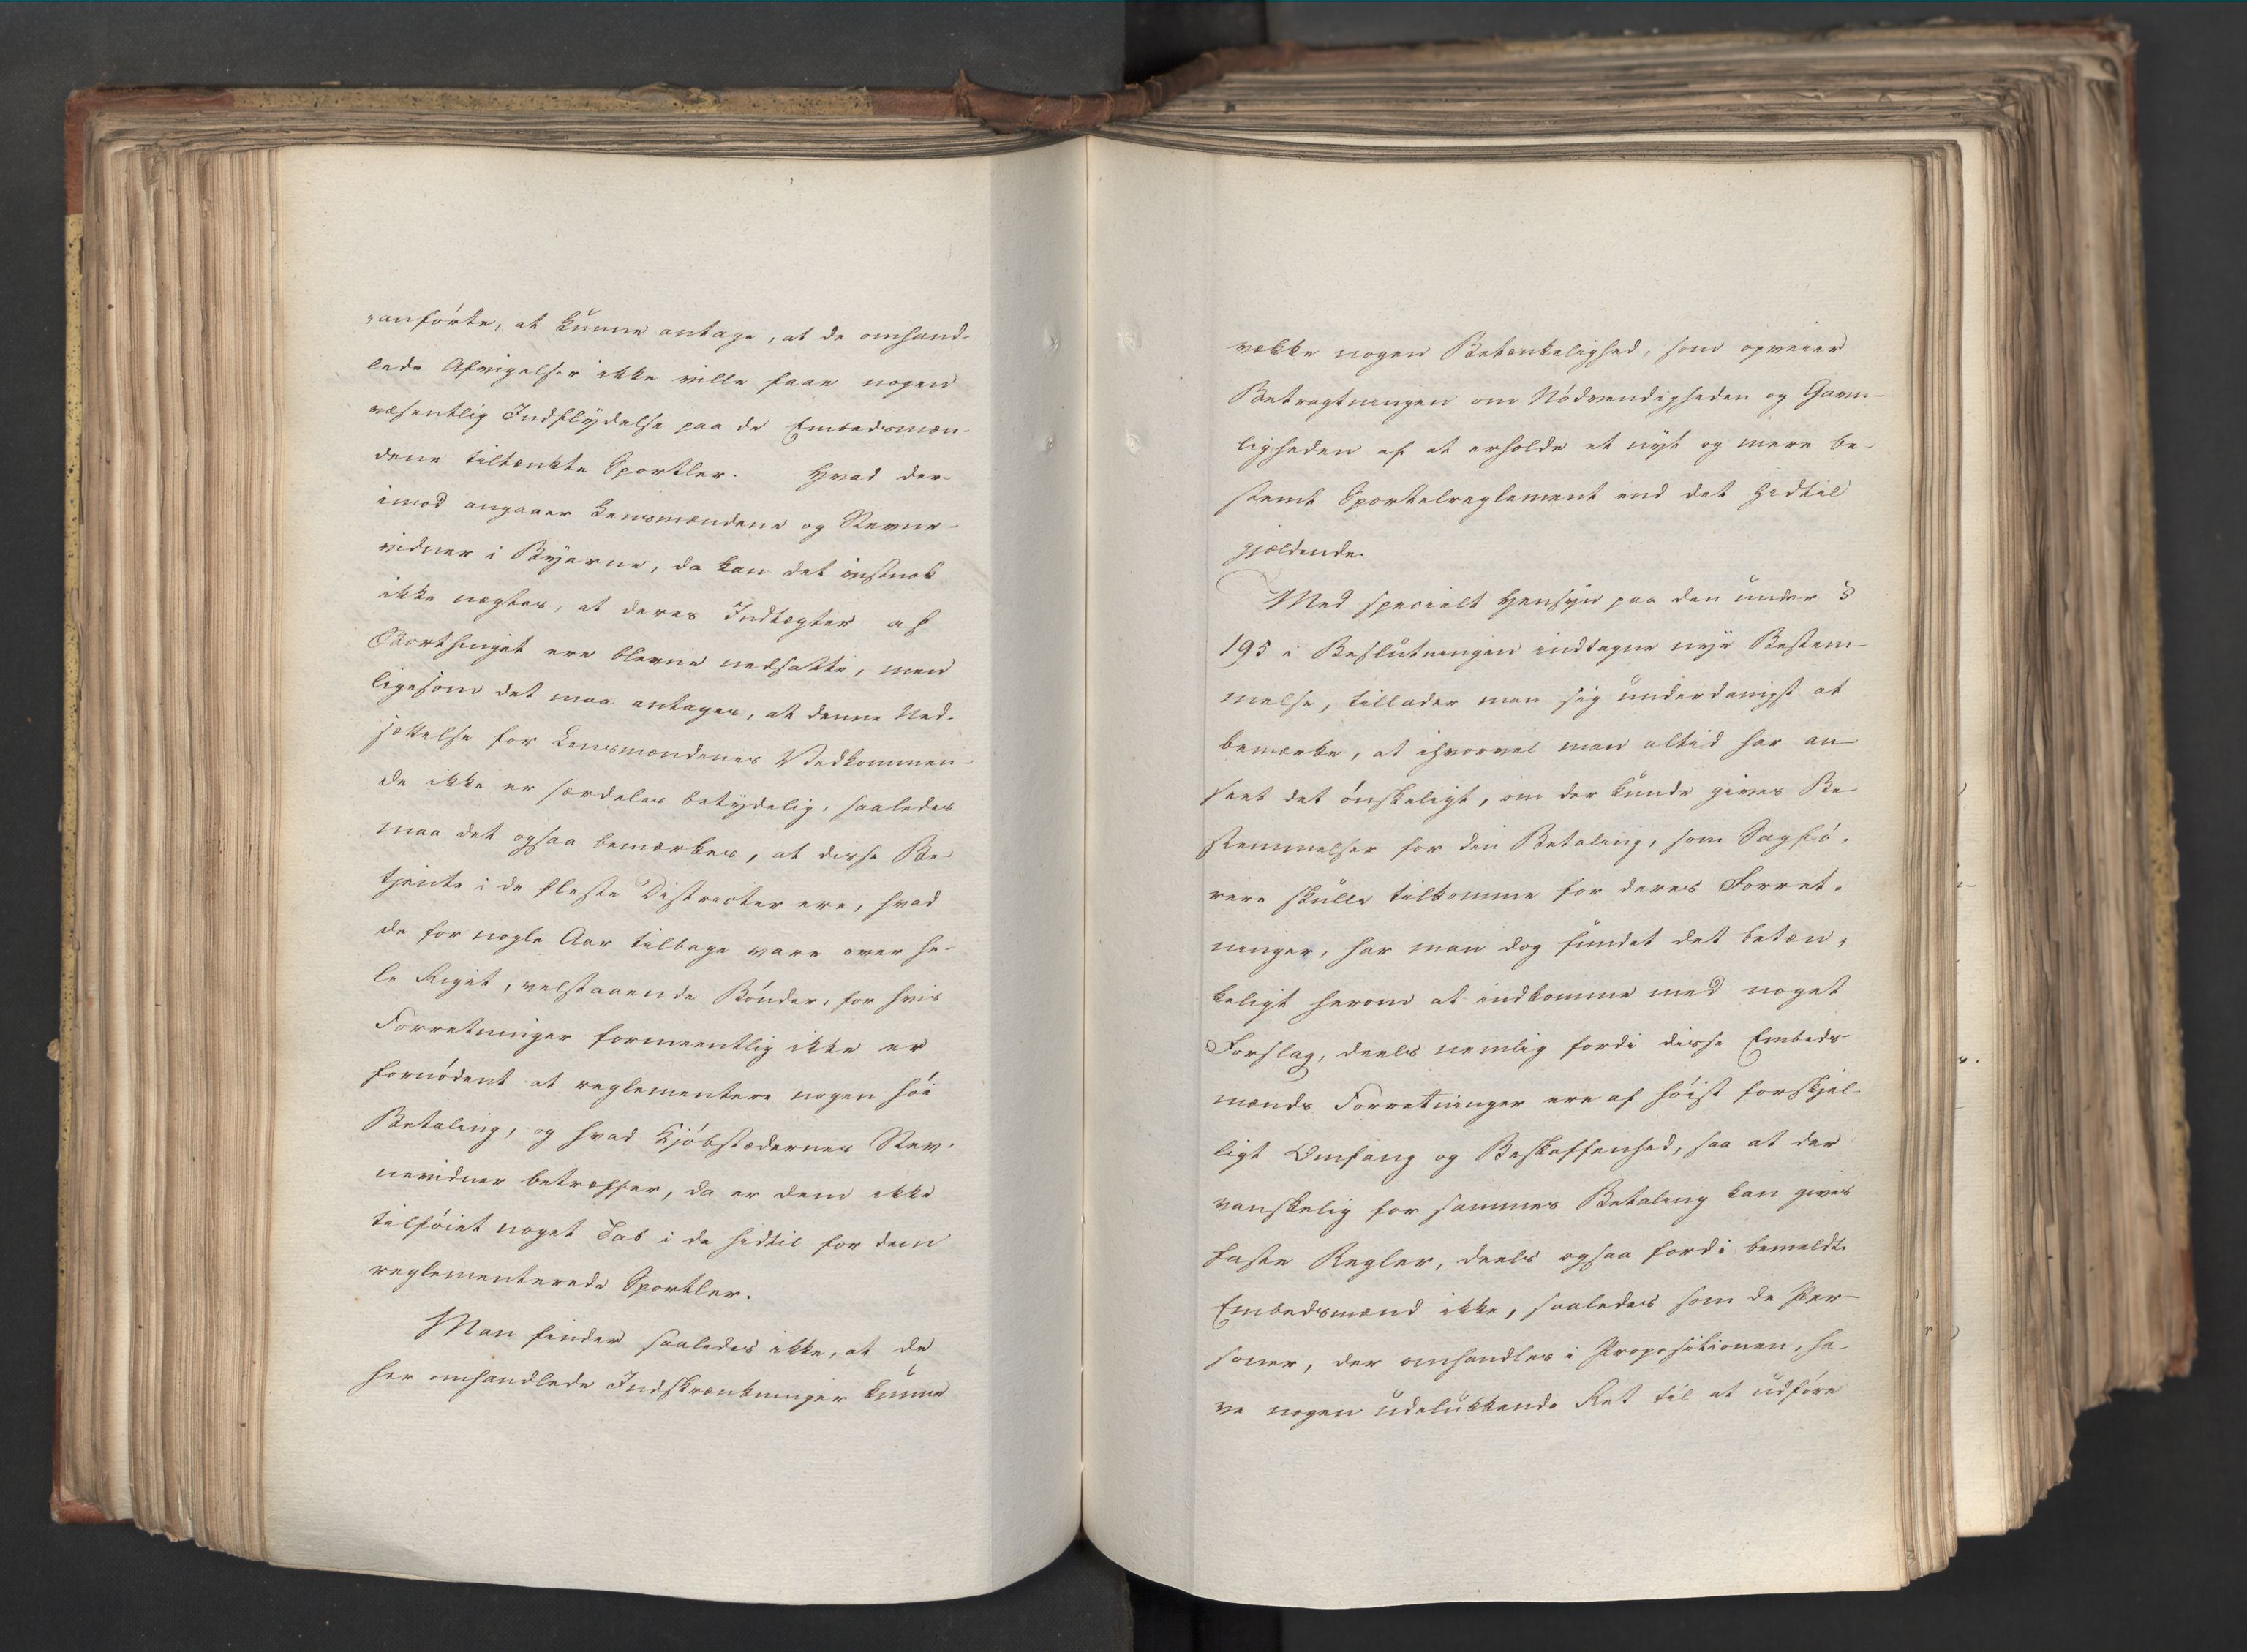 anførte, at kunne antage, at de omhand-
lede Afvigelser ikke ville faae nogen
væsentlig Indflydelse paa de Embedsmæn-
dene tiltænkte Sportler. Hvad der-
imod angaaer Lensmændene og Stevne-
vidner i Byerne, da kan det vistnok
ikke nægtes, at deres Indtægter af
Storthinget ere blevne nedsatte, men
ligesom det maa antages, at denne Ned-
sættelse for Lensmændenes Vedkommen-
de ikke er særdeles betydelig, saaledes
maa det ogsaa bemærkes, at disse Be-
tjente i de fleste Districter ere, hvad
de for nogle Aar tilbage vare over he-
le Riget, velstaaende Bönder, for hvis
Forretninger formeentlig ikke er
fornödent at reglementere nogen höi
Betaling, og hvad Kjöbstædernes Stev-
nevidner betræffer, da er dem ikke
tilföiet noget Tab i de hidtil for dem
reglementerede Sportler.
Man finder saaledes ikke, at de
her omhandlede Indskrænkninger kunne
vække nogen Betænkelighed, som opveier
Betragtningen om Nödvendigheden og Gavn-
ligheden af at erholde et nyt og mere be-
stemt Sportelreglement end det hidtil
gjældende.
Med specielt Hensyn paa den under §
195 i Beslutningen indtagne nye Bestem-
melse, tillader man sig underdanigst at
bemærke, at ihvorvel man altid har an-
seet det önskeligt, om der kunde gives Be-
stemmelser for den Betaling, som Sagfö-
rere skulle tilkomme for deres Forret-
ninger, har man dog fundet det betæn-
keligt herom at indkomme med noget
Forslag, deels nemlig fordi disse Embeds-
mænds Forretninger ere af höist forskjel-
ligt Omfang og Beskaffenhed, saa at der
vanskelig for sammes Betaling kan gives
faste Regler, deels ogsaa fordi bemeldte
Embedsmænd ikke, saaledes som de Per-
soner, der omhandles i Propositionen, ha-
ve nogen udelukkende Ret til at udföre